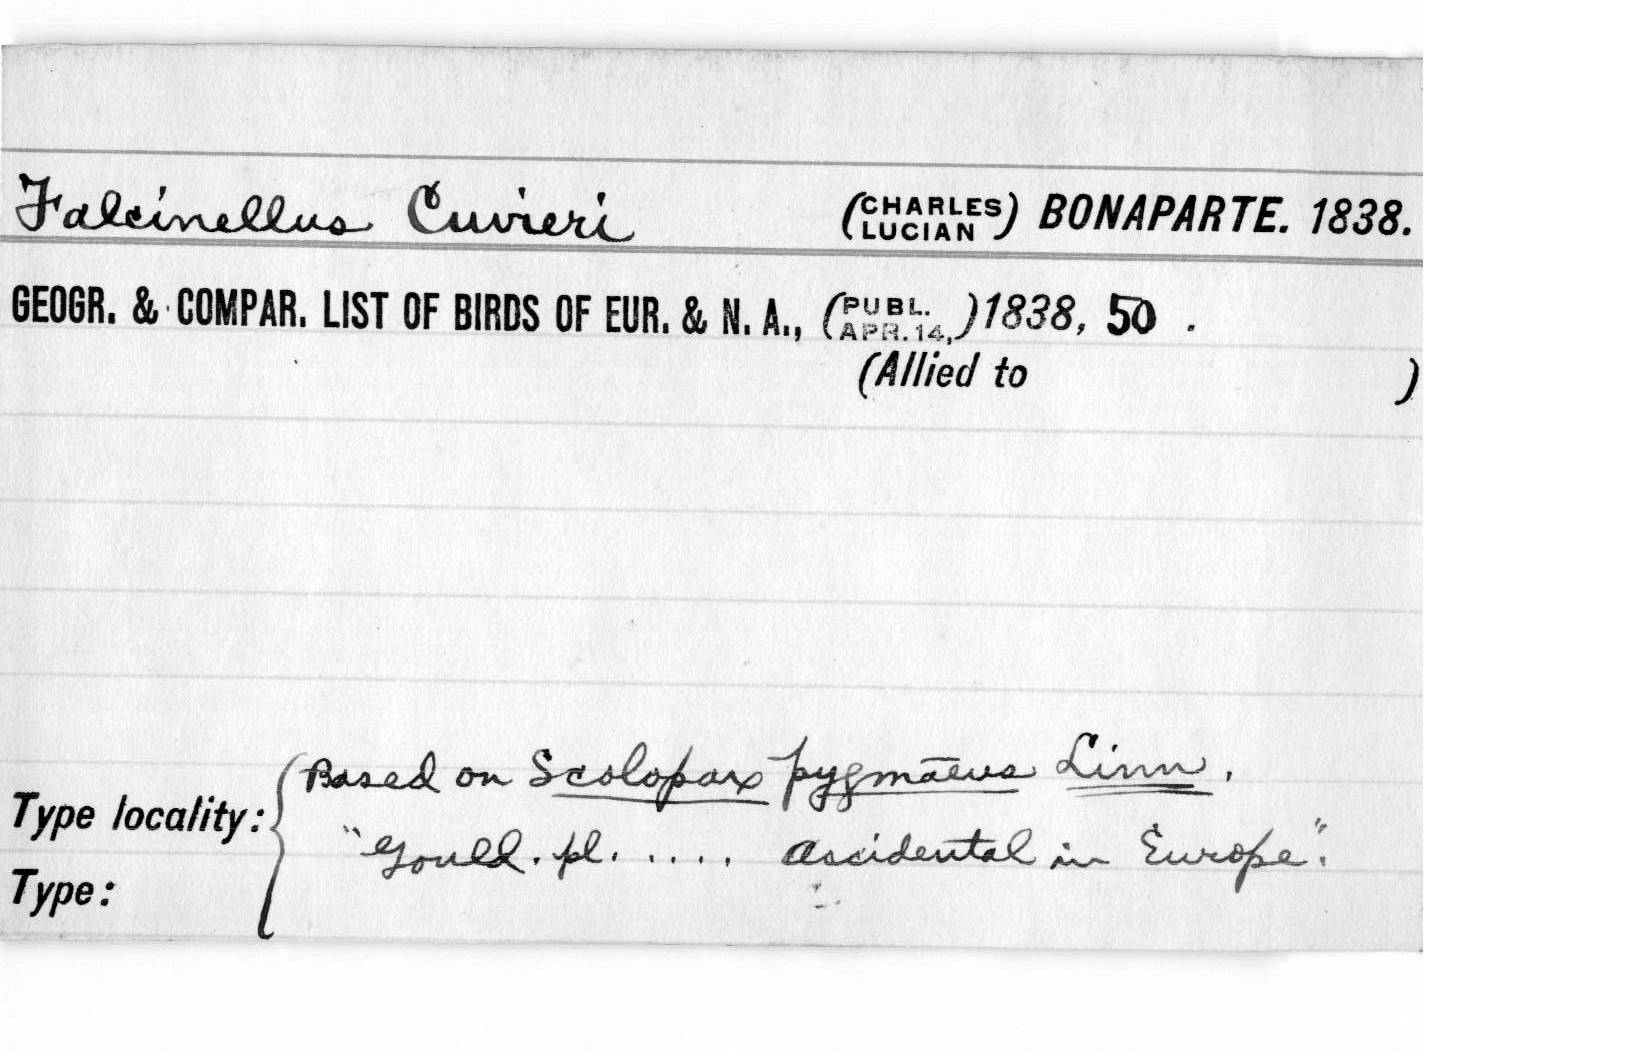 Falcinellus Cuvieri (CHARLES LUCIAN) BONAPARTE. 1838.
GEOGR. & COMPAR. LIST OF BIRDS OF EUR. & N. A., (PUBL. APR. 14,) 1838, 50 .
(Allied to )
Based on Scolopax pygmaeus Linn.
Type locality:
"Gould. pl. .... Accidental in Europe".
Type: